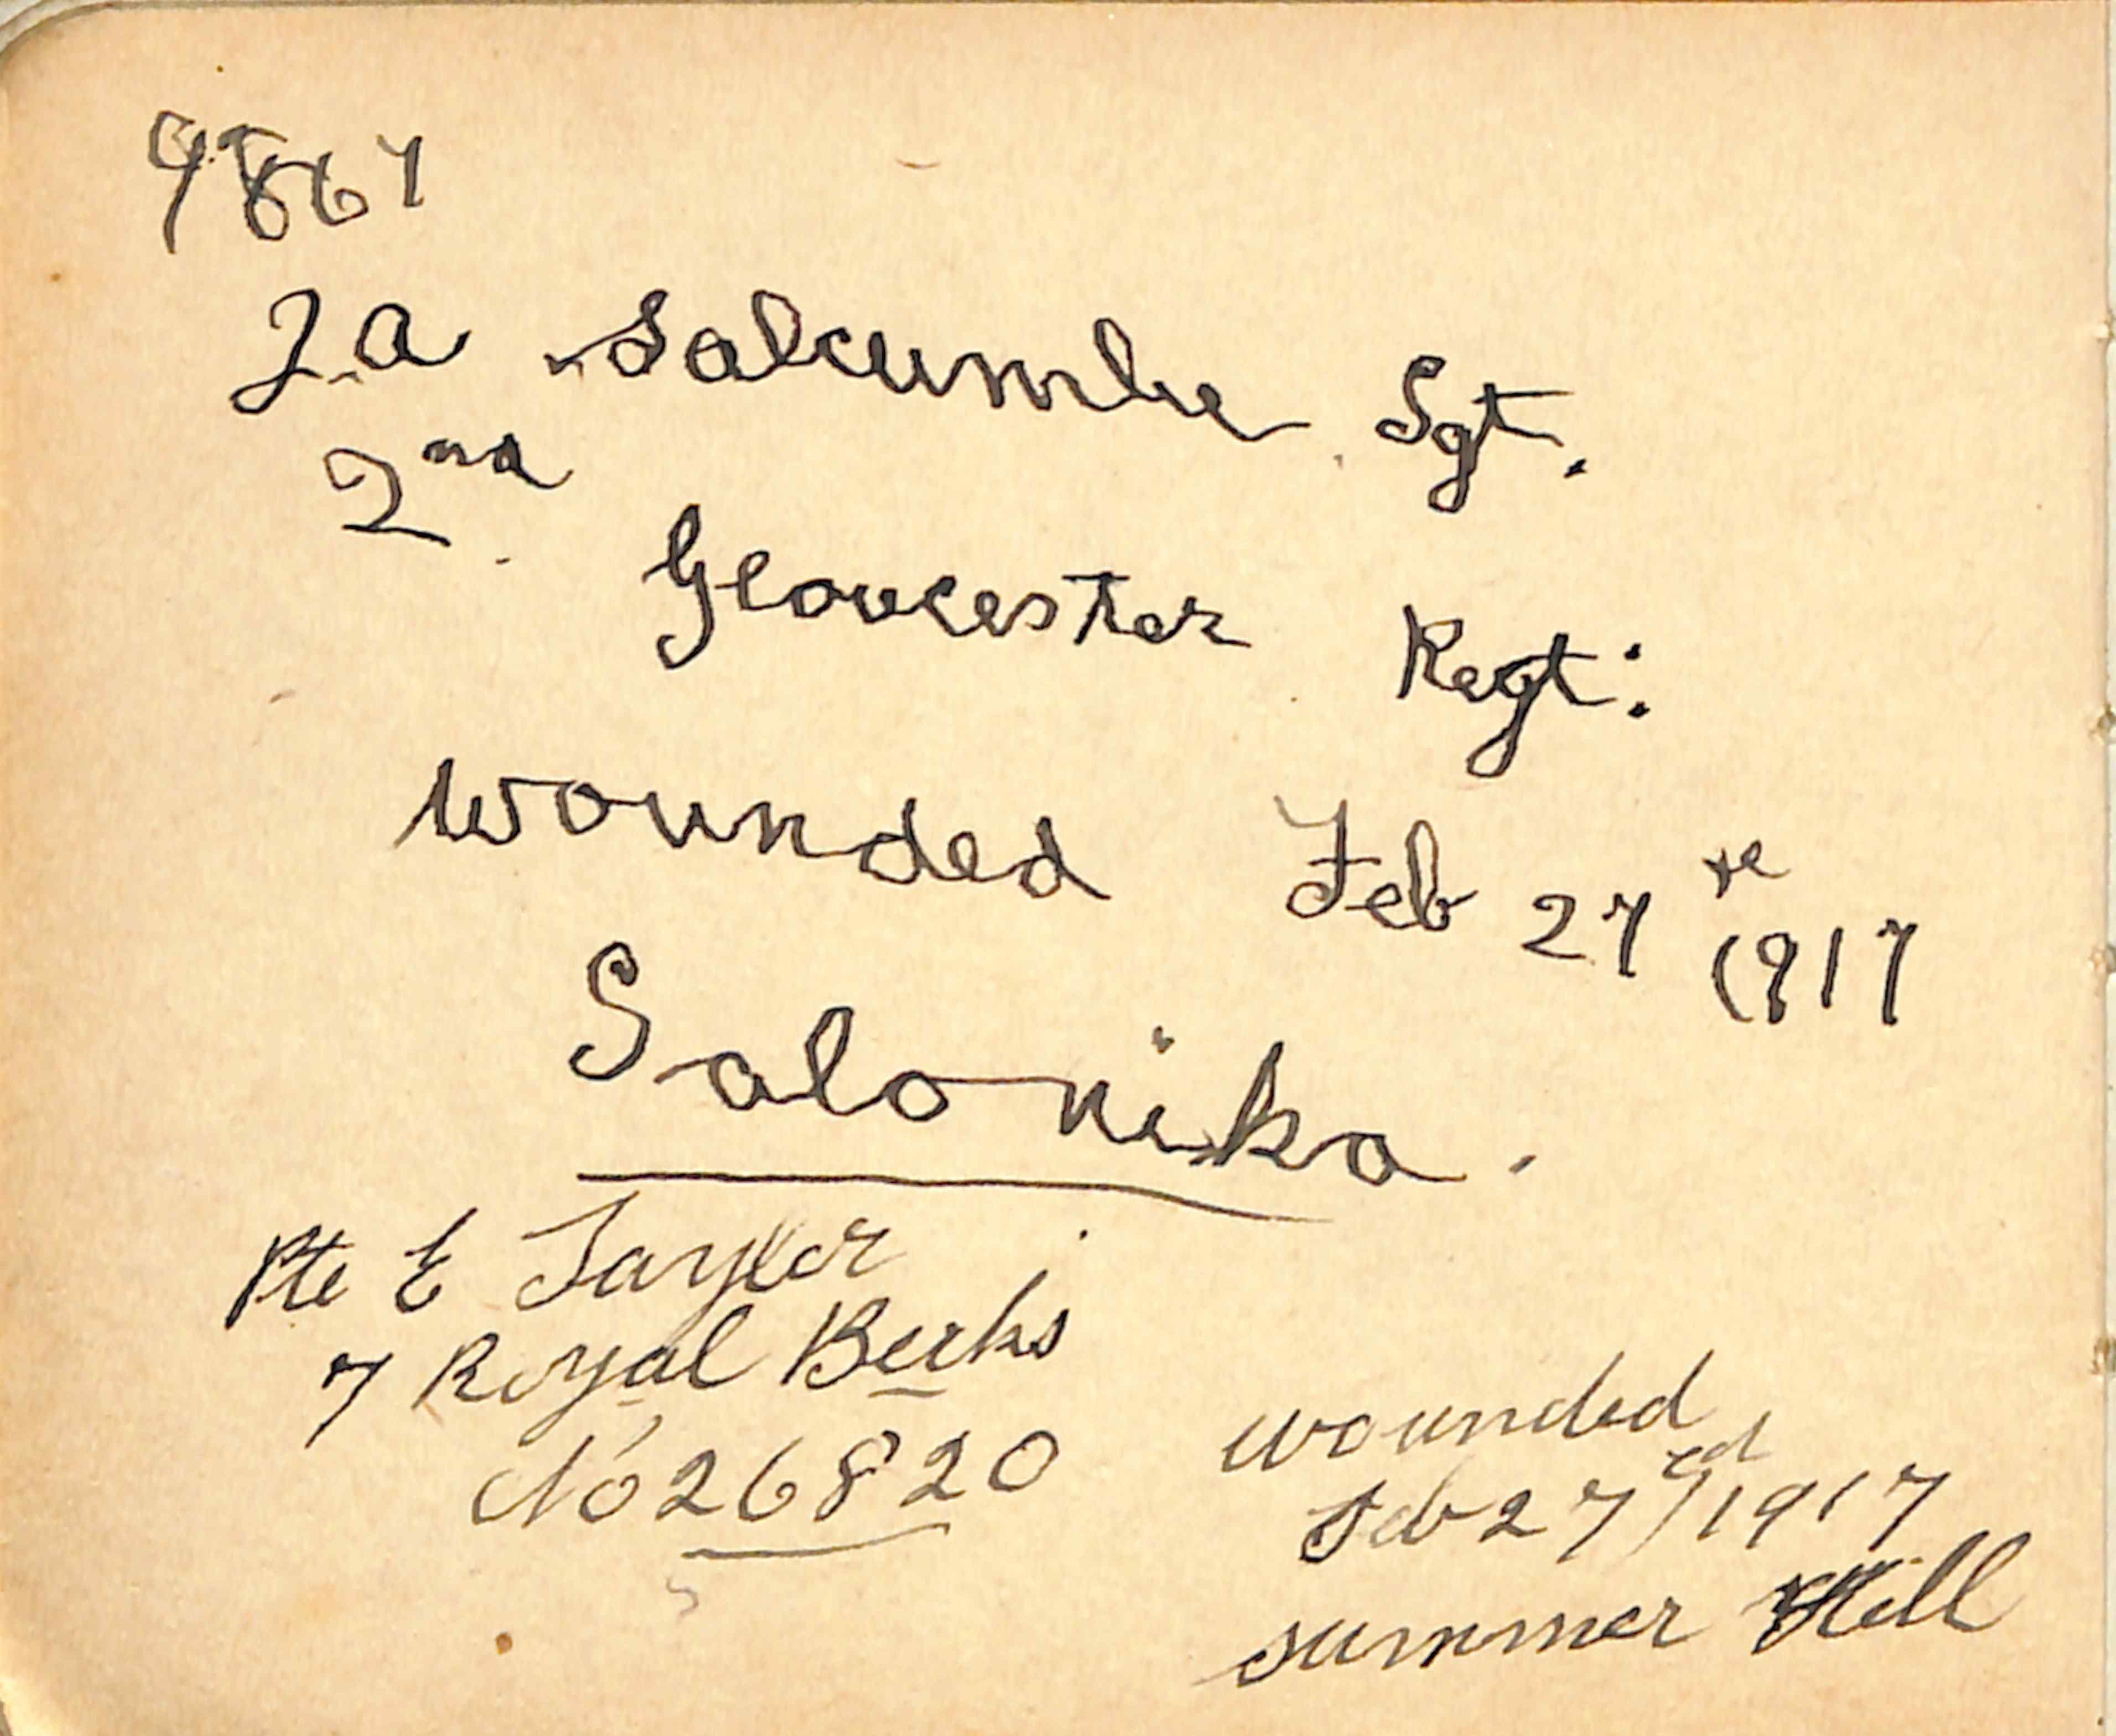 9867
J. A Salcumbe Sgt.
2nd Gloucester Regt:
wounded Feb 27th 1917
Salonika.
Pte E Taylor
7 Royal Berks
No 26820
wounded
Feb 27th/1917
summer Hill